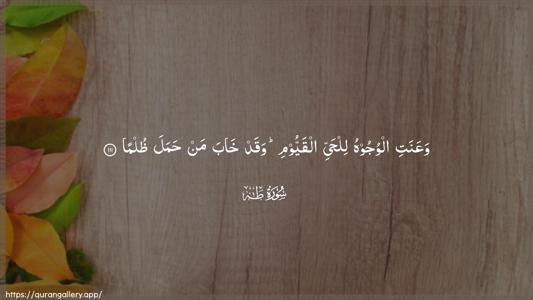 وَعَنَتِ الْوُجُوْهُ لِلْحَيِّ الْقَيُّوْمِ ؕ وَقَدْ خَابَ مَنْ حَمَلَ ظُلْمًا ۝۱۱۱
سُوْرَةُ طٰهٰ
https://qurangallery.app/